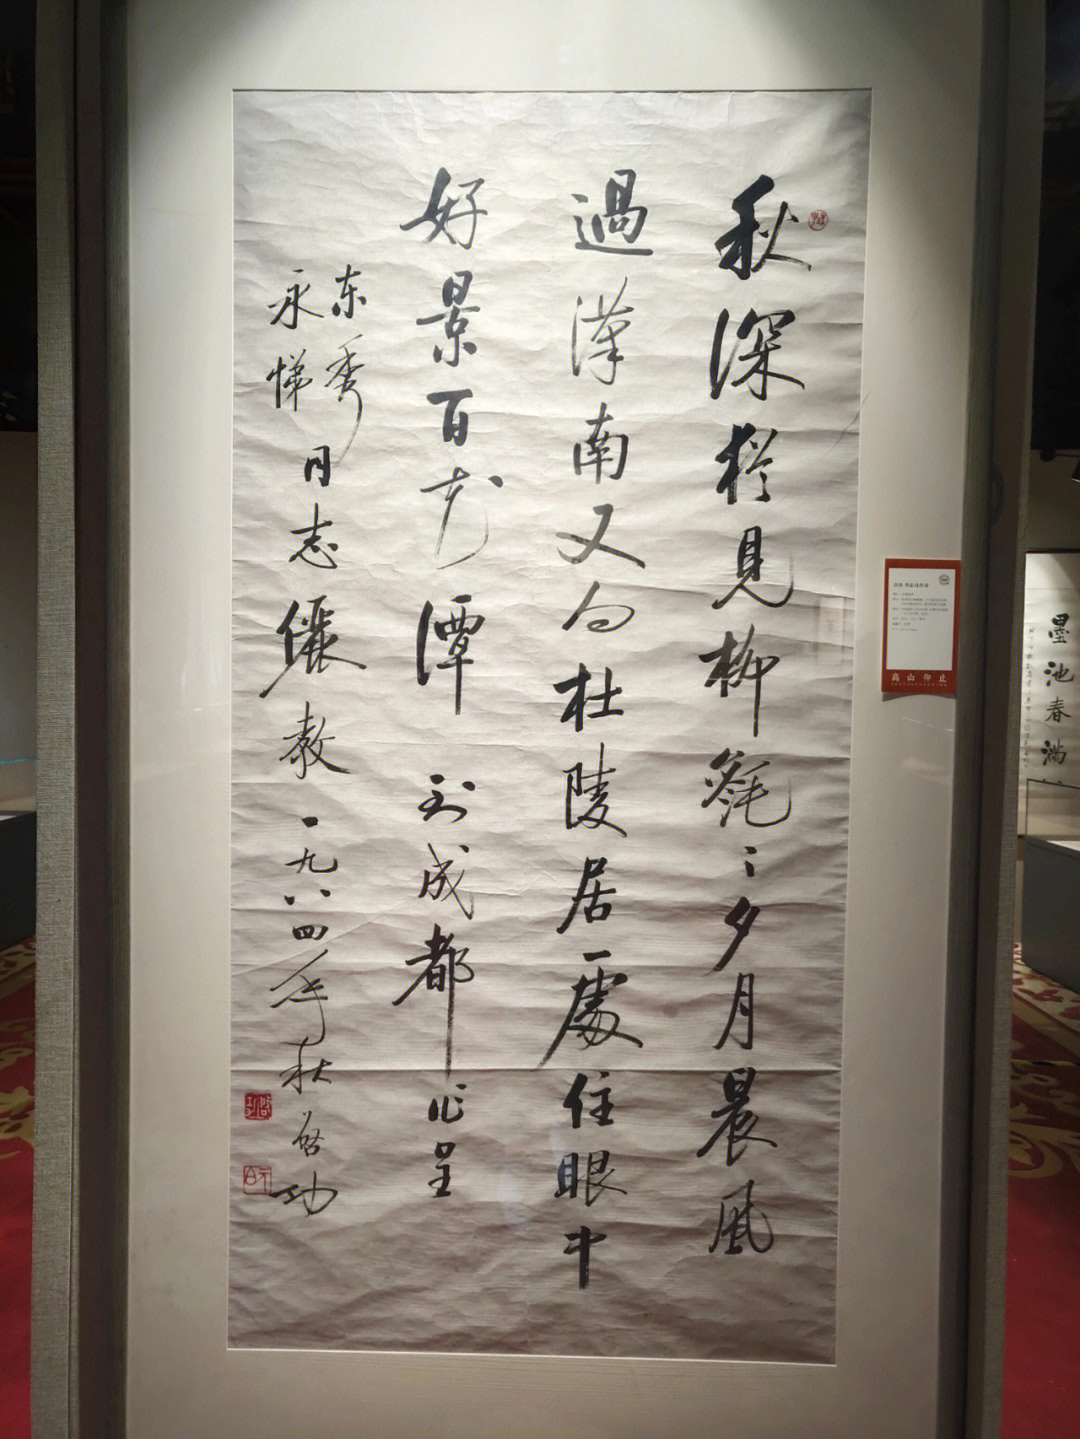 秋深犹見柳毿〻夕月晨風
過漢南又向杜陵居一處住眼中
好景百花潭 到成都作呈
东秀
永悌
同志儷教 一九八四年秋 启功
高山仰止
墨池春满